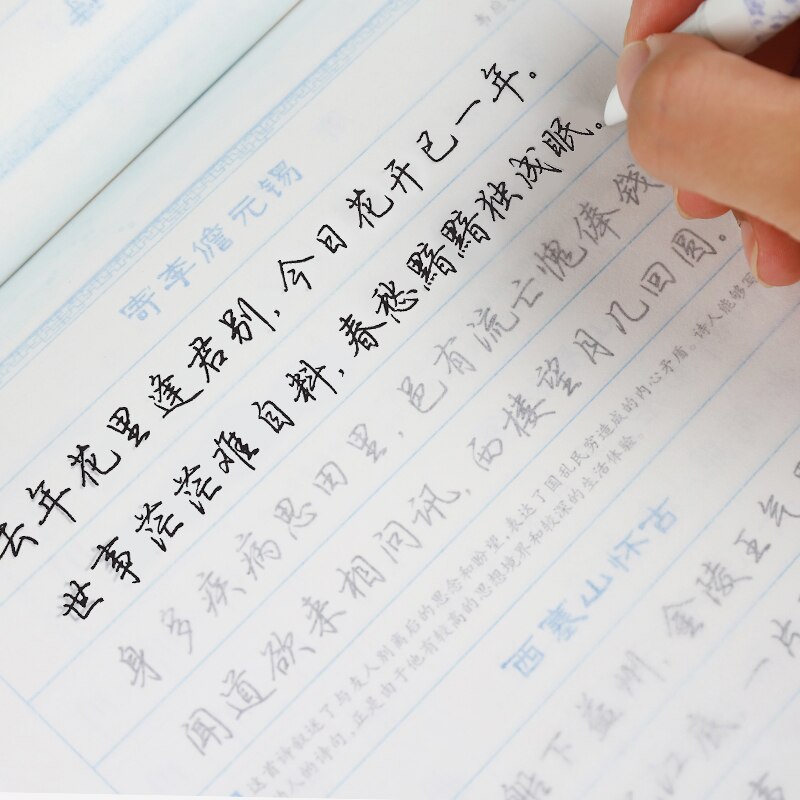 寄李儋元锡
去年花里逢君别,今日花开已一年。
世事茫茫难自料,春愁黯黯独成眠。
身多疾病思田里,邑有流亡愧俸钱
闻道欲来相问讯,西楼望月几回圆。
这首诗叙述了与友人别离后的思念和盼望,表达了国乱民穷造成的内心矛盾。诗人能够写
人的诗句,正是由于他有较高的思想境界和较深的生活体验。
西塞山怀古
船下益州,金陵王气
江底,一片
事